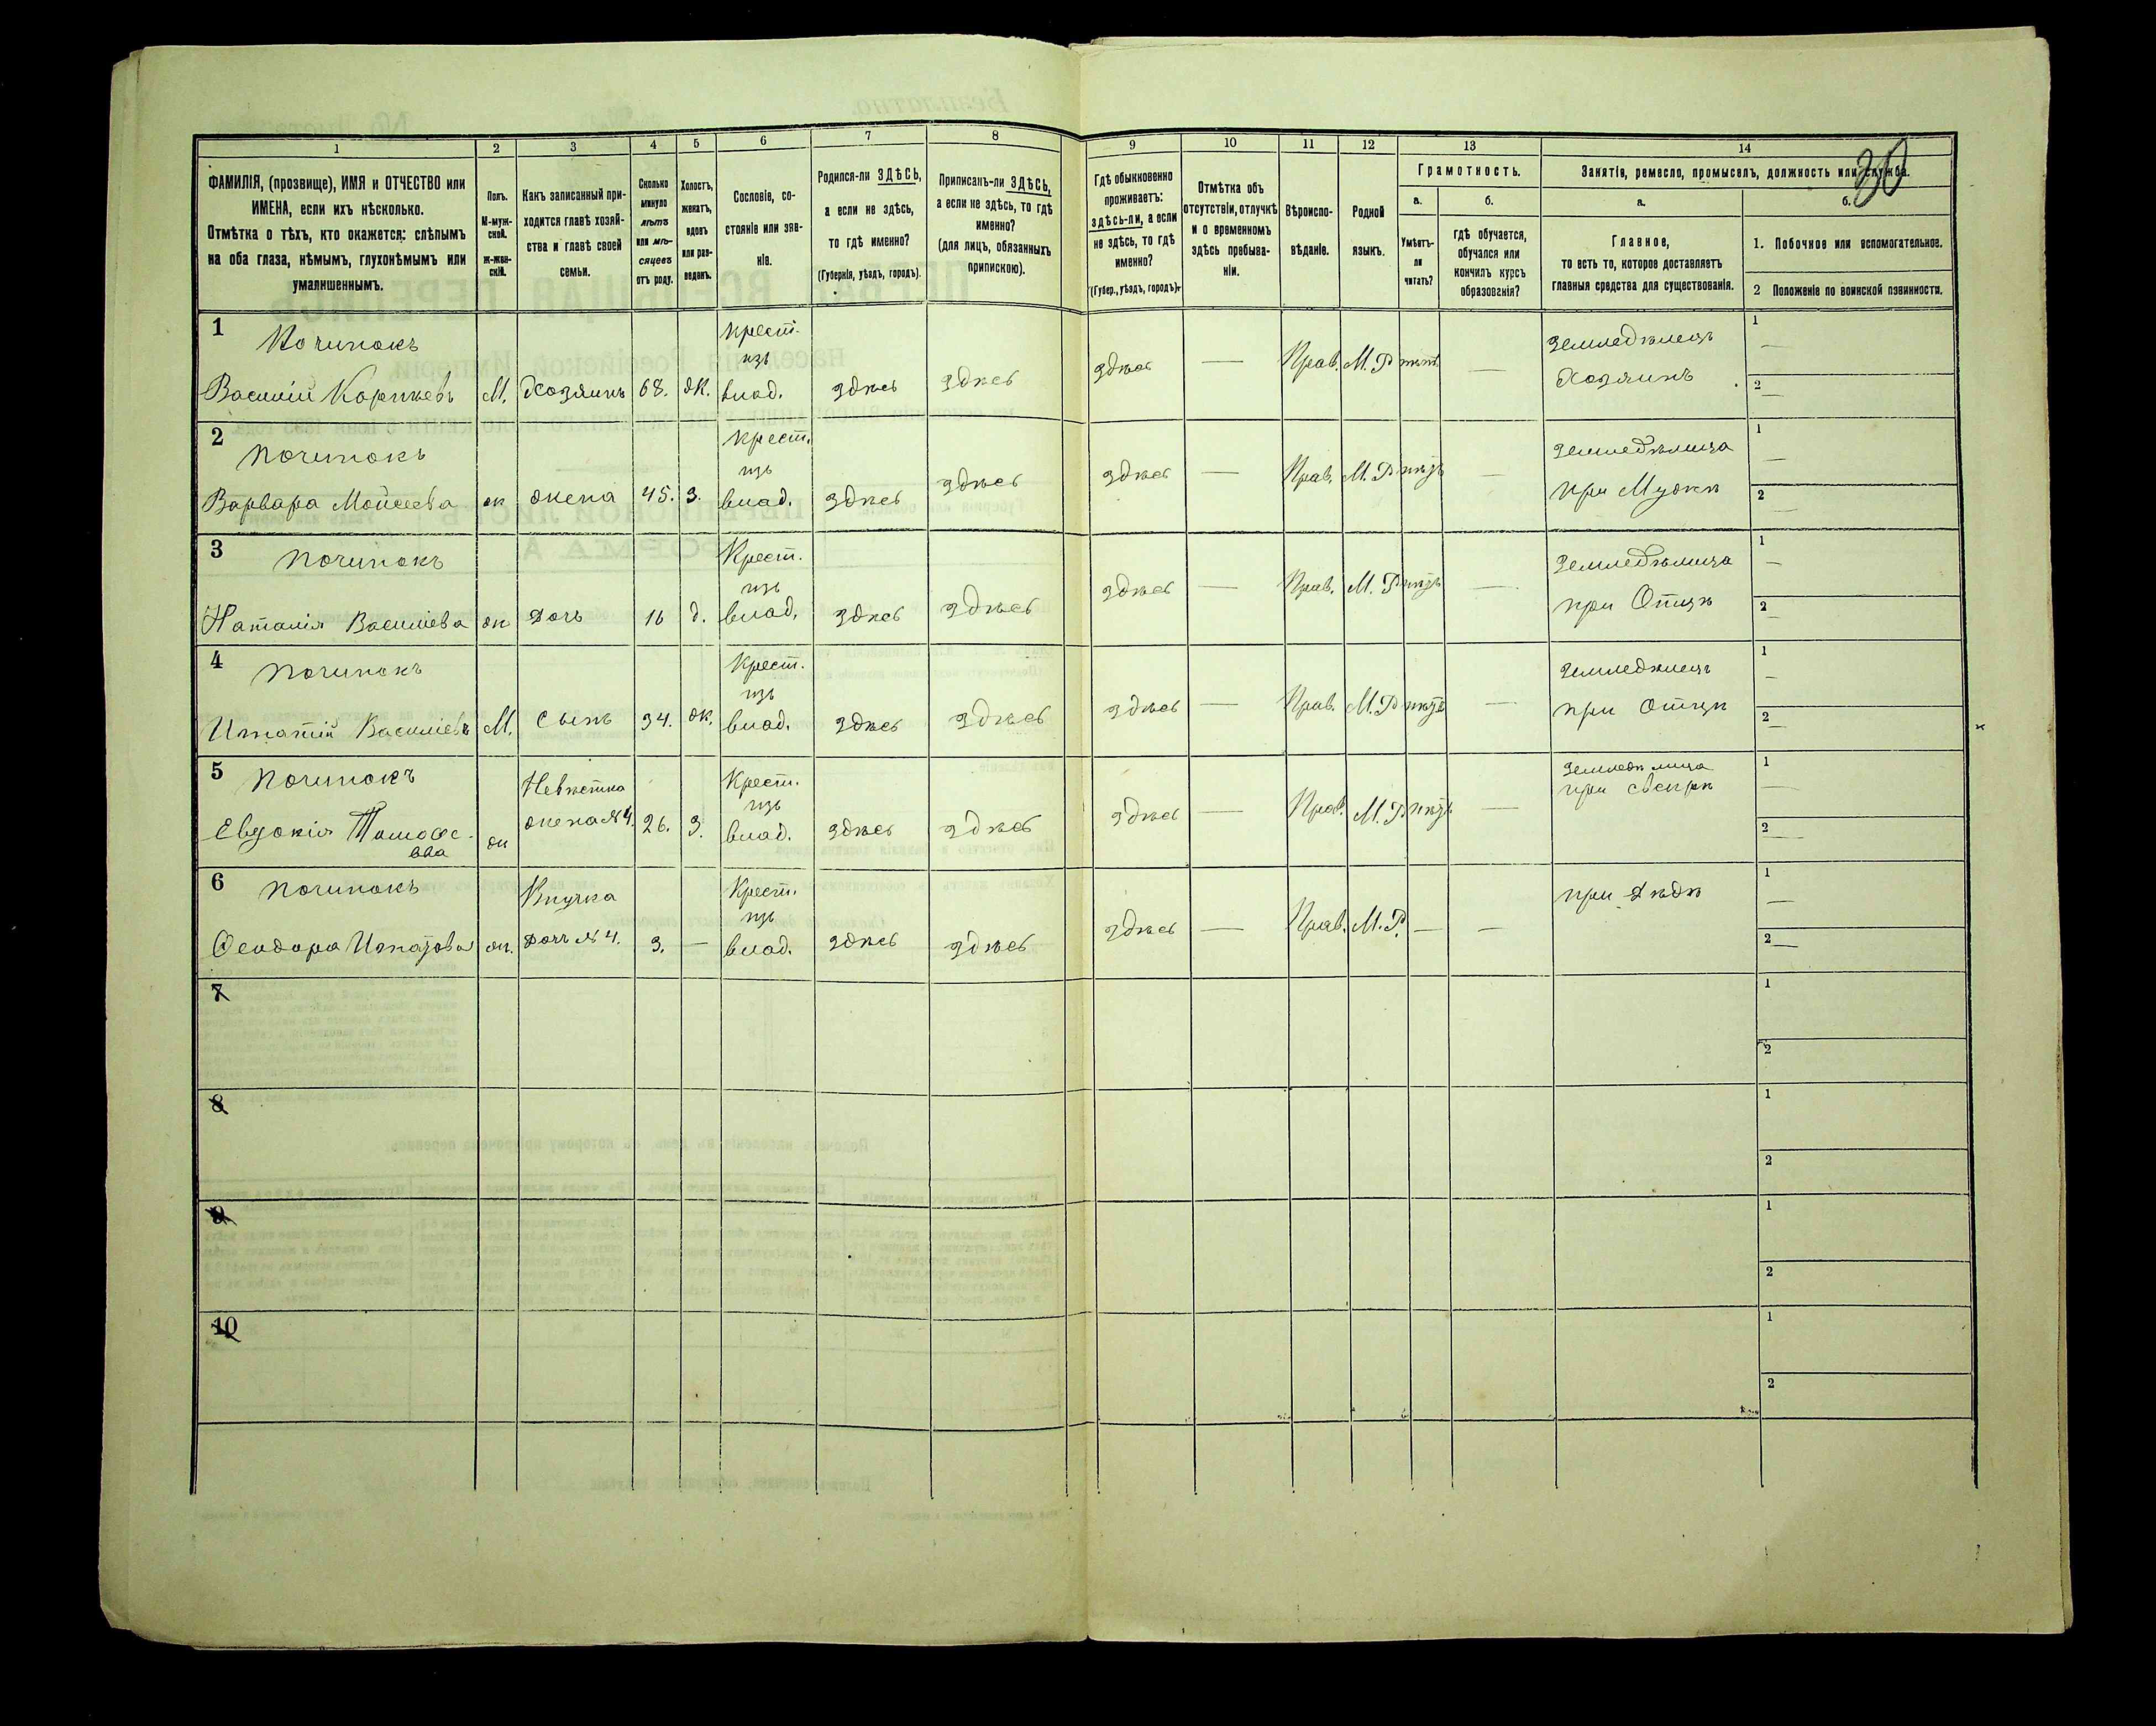 30
1 2 3 4 5 6 7 8 9 10 11 12 13 14
ФАМИЛІЯ, (прозвище), ИМЯ и ОТЧЕСТВО или
ИМЕНА, если ихъ нѣсколько.
Отмѣтка о тѣхъ, кто окажется: слѣпымъ
на оба глаза, нѣмымъ, глухонѣмымъ или
умалишеннымъ.
Полъ.
М-муж-
ской.
Ж-жен-
скій.
Какъ записанный при-
ходится главѣ хозяй-
ства и главѣ своей
семьи.
Сколько
минуло
лѣтъ
или мѣ-
сяцевъ
отъ роду.
Холостъ,
женатъ,
вдовъ
или раз-
веденъ.
Сословіе, со-
стояніе или зва-
ніе.
Родился-ли ЗДѢСЬ,
а если не здѣсь,
то гдѣ именно?
(Губернія, уѣздъ, городъ).
Приписанъ-ли ЗДѢСЬ,
а если не здѣсь, то гдѣ
именно?
(для лицъ, обязанныхъ
припискою).
Гдѣ обыкновенно
проживаетъ:
здѣсь-ли, а если
не здѣсь, то гдѣ
именно?
(Губер., уѣздъ, городъ).
Отмѣтка объ
отсутствіи, отлучкѣ
и о временномъ
здѣсь пребыва-
ніи.
Вѣроиспо-
вѣданіе.
Родной
языкъ.
Грамотность.
а.
Умѣетъ-
ли
читать?
б.
гдѣ обучается,
обучался или
кончилъ курсъ
образованія?
Занятія, ремесло, промыселъ, должность или служба.
а.
Главное,
то есть то, которое доставляетъ
главныя средства для существованія.
б.
1. Побочное или вспомогательное.
2 Положеніе по воинской повинности.
1
Починокъ
Василій Карпѣевъ
М.
Хозяинъ
68.
Ж.
Крест.
изъ
влад.
здѣсь
здѣсь
здѣсь
—
Прав.
М. Р
нѣтъ
—
Земледѣлецъ
Хозяинъ
1
—
2
—
2
Починокъ
Варвара Мойсеева
ж
жена
45.
З.
Крест.
изъ
влад.
здѣсь
здѣсь
здѣсь
—
Прав.
М. Р
нѣтъ
—
Земледѣлица
при Мужѣ
1
—
2
—
3
Починокъ
Наталія Василіева
ж
Дочь
16
д.
Крест.
изъ
влад.
здѣсь
здѣсь
здѣсь
—
Прав.
М. Р
нѣтъ
—
Земледѣлица
при Отцѣ
1
—
2
—
4
Починокъ
Игнатій Василіевъ
М.
сынъ
34.
ж.
Крест.
изъ
влад.
здѣсь
здѣсь
здѣсь
—
Прав.
М. Р
нѣтъ
—
Земледѣлецъ
при Отцѣ
1
—
2
—
5
Починокъ
Евдокія Тимоѳе-
ева
ж
Невѣстка
жена №4.
26.
З.
Крест.
изъ
влад.
здѣсь
здѣсь
здѣсь
—
Прав.
М. Р
нѣтъ
—
Земледѣлица
при свекрѣ
1
—
2
—
6
Починокъ
Ѳеодора Игнатова
ж.
Внучка
Дочь №4.
3.
—
Крест.
изъ
влад.
здѣсь
здѣсь
здѣсь
—
Прав.
М. Р.
—
—
при Дѣдѣ
1
—
2
—
7
1
2
8
1
2
9
1
2
10
1
2